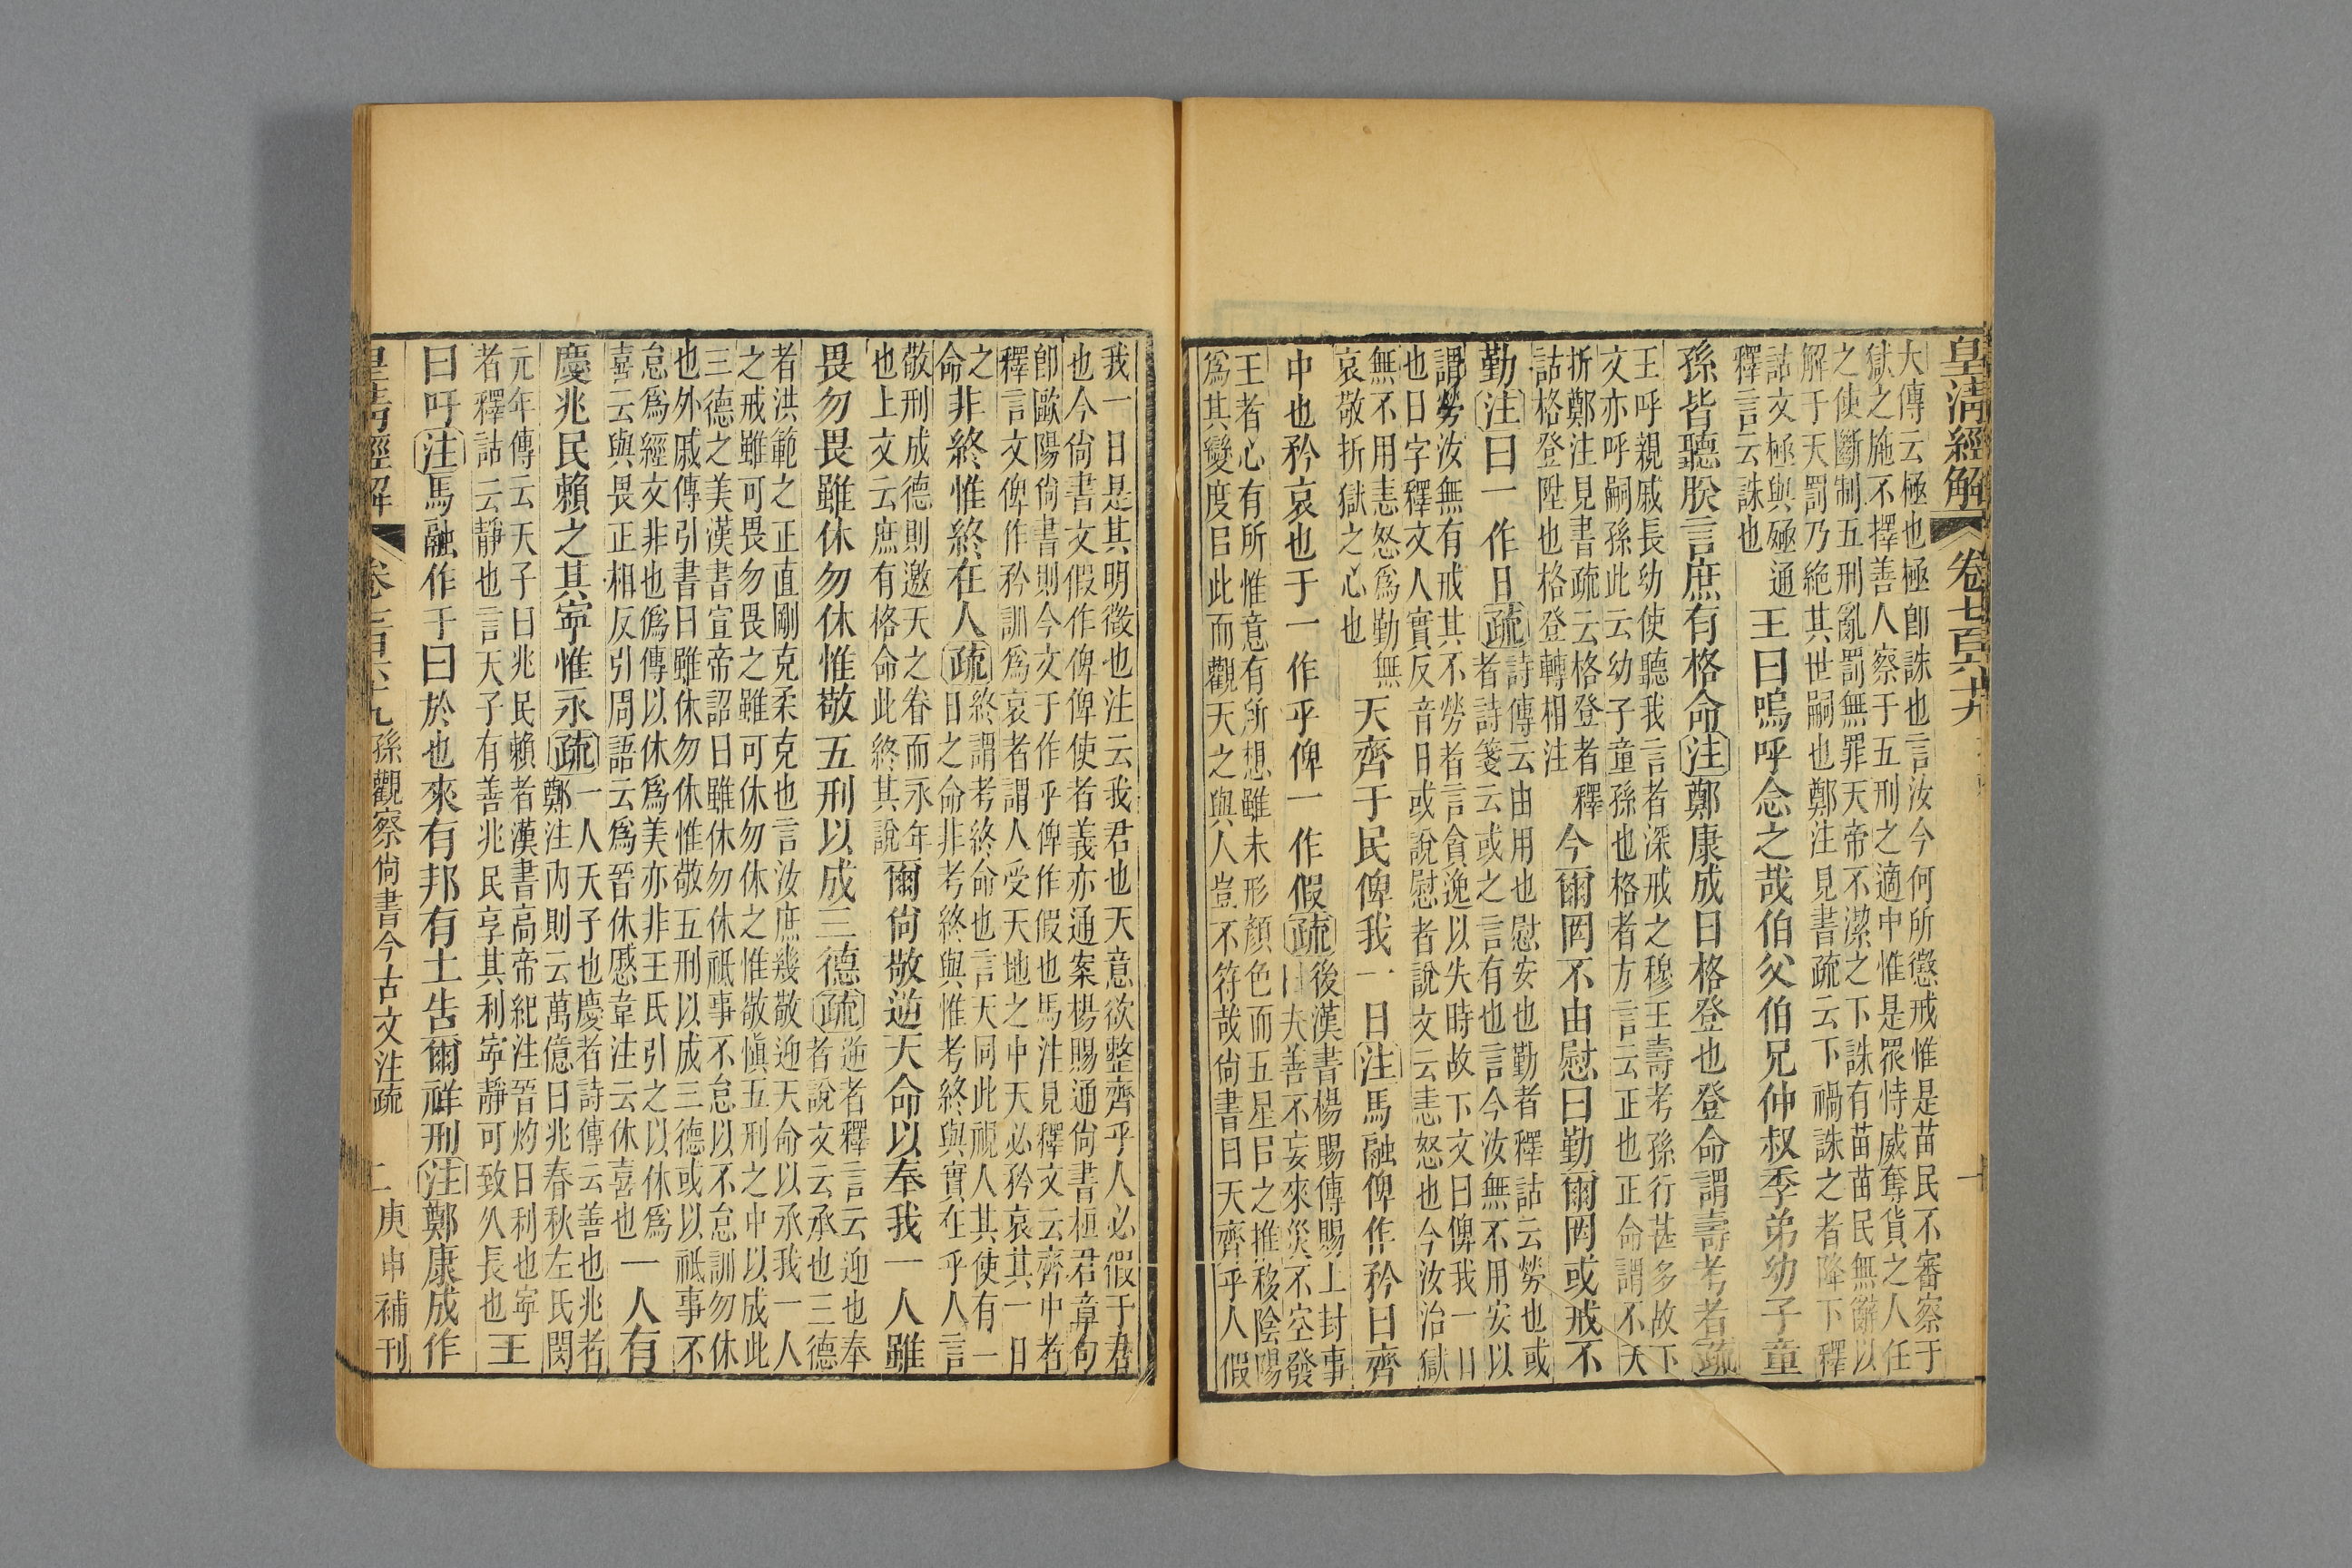 皇清經解 卷七百六十九 十一
大傳云極也極卽誅也言汝今何所懲戒惟是苗民不審察于
獄之施不擇善人察于五刑之適中惟是眾恃威奪貨之人任
之使斷制五刑亂罰無罪天帝不潔之下誅有苗苗民無辭以
解于天罰乃絶其世嗣也鄭注見書疏云下禍誅之者降下釋
詁文極與殛通
釋言云誅也
王曰嗚呼念之哉伯父伯兄仲叔季弟幼子童
孫皆聽朕言庶有格命注鄭康成曰格登也登命謂壽考者疏
王呼親戚長幼使聽我言者深戒之穆王壽考孫行甚多故下
文亦呼嗣孫此云幼子童孫也格者方言云正也正命謂不夭
折鄭注見書疏云格登者釋
詁格登陞也格登轉相注
今爾罔不由慰曰勤爾罔或戒不
勤注曰一作日疏詩傳云由用也慰安也勤者釋詁云勞也或
者詩箋云或之言有也言今汝無不用安以
謂勞汝無有戒其不勞者言貪逸以失時故下文曰俾我一日
也日字釋文人實反音曰或說慰者說文云恚怒也今汝治獄
無不用恚怒爲勤無
哀敬折獄之心也
天齊于民俾我一日注馬融俾作矜曰齊
中也矜哀也于一作乎俾一作假疏後漢書楊賜傳賜上封事
曰夫善不妄來災不空發
王者心有所惟意有所想雖未形顏色而五星㠯之推移陰陽
爲其變度㠯此而觀天之與人豈不符哉尚書曰天齊乎人假
我一日是其明徵也注云我君也天意欲整齊乎人必假于君
也今尚書文假作俾俾使者義亦通案楊賜通尚書桓君章句
卽歐陽尚書則今文于作乎俾作假也馬注見釋文云齊中者
釋言文俾作矜訓爲哀者謂人受天地之中天必矜哀其一日
之
命
非終惟終在人疏終謂考終命也言天同此視人其使有一
日之命非考終與惟考終與實在乎人言
敬刑成德則邀天之眷而永年
也上文云庶有格命此終其說
爾尚敬逆天命以奉我一人雖
畏勿畏雖休勿休惟敬五刑以成三德疏逆者釋言云迎也奉
者說文云承也三德
者洪範之正直剛克柔克也言汝庶幾敬迎天命以承我一人
之戒雖可畏勿畏之雖可休勿休之惟敬愼五刑之中以成此
三德之美漢書宣帝詔曰雖休勿休祗事不怠以不怠訓勿休
也外戚傳引書曰雖休勿休惟敬五刑以成三德或以祗事不
怠爲經文非也僞傳以休爲美亦非王氏引之以休爲
喜云與畏正相反引周語云爲晉休慼韋注云休喜也
一人有
慶兆民賴之其寧惟永疏一人天子也慶者詩傳云善也兆者
鄭注內則云萬億曰兆春秋左氏閔
元年傳云天子曰兆民賴者漢書高帝紀注晉灼曰利也寧
者釋詁云靜也言天子有善兆民享其利寧靜可致久長也
王
曰吁注馬融作于曰於也來有邦有土告爾祥刑注鄭康成作
皇清經解 卷七百六十九孫觀察尚書今古文注疏 二 庚申補刊